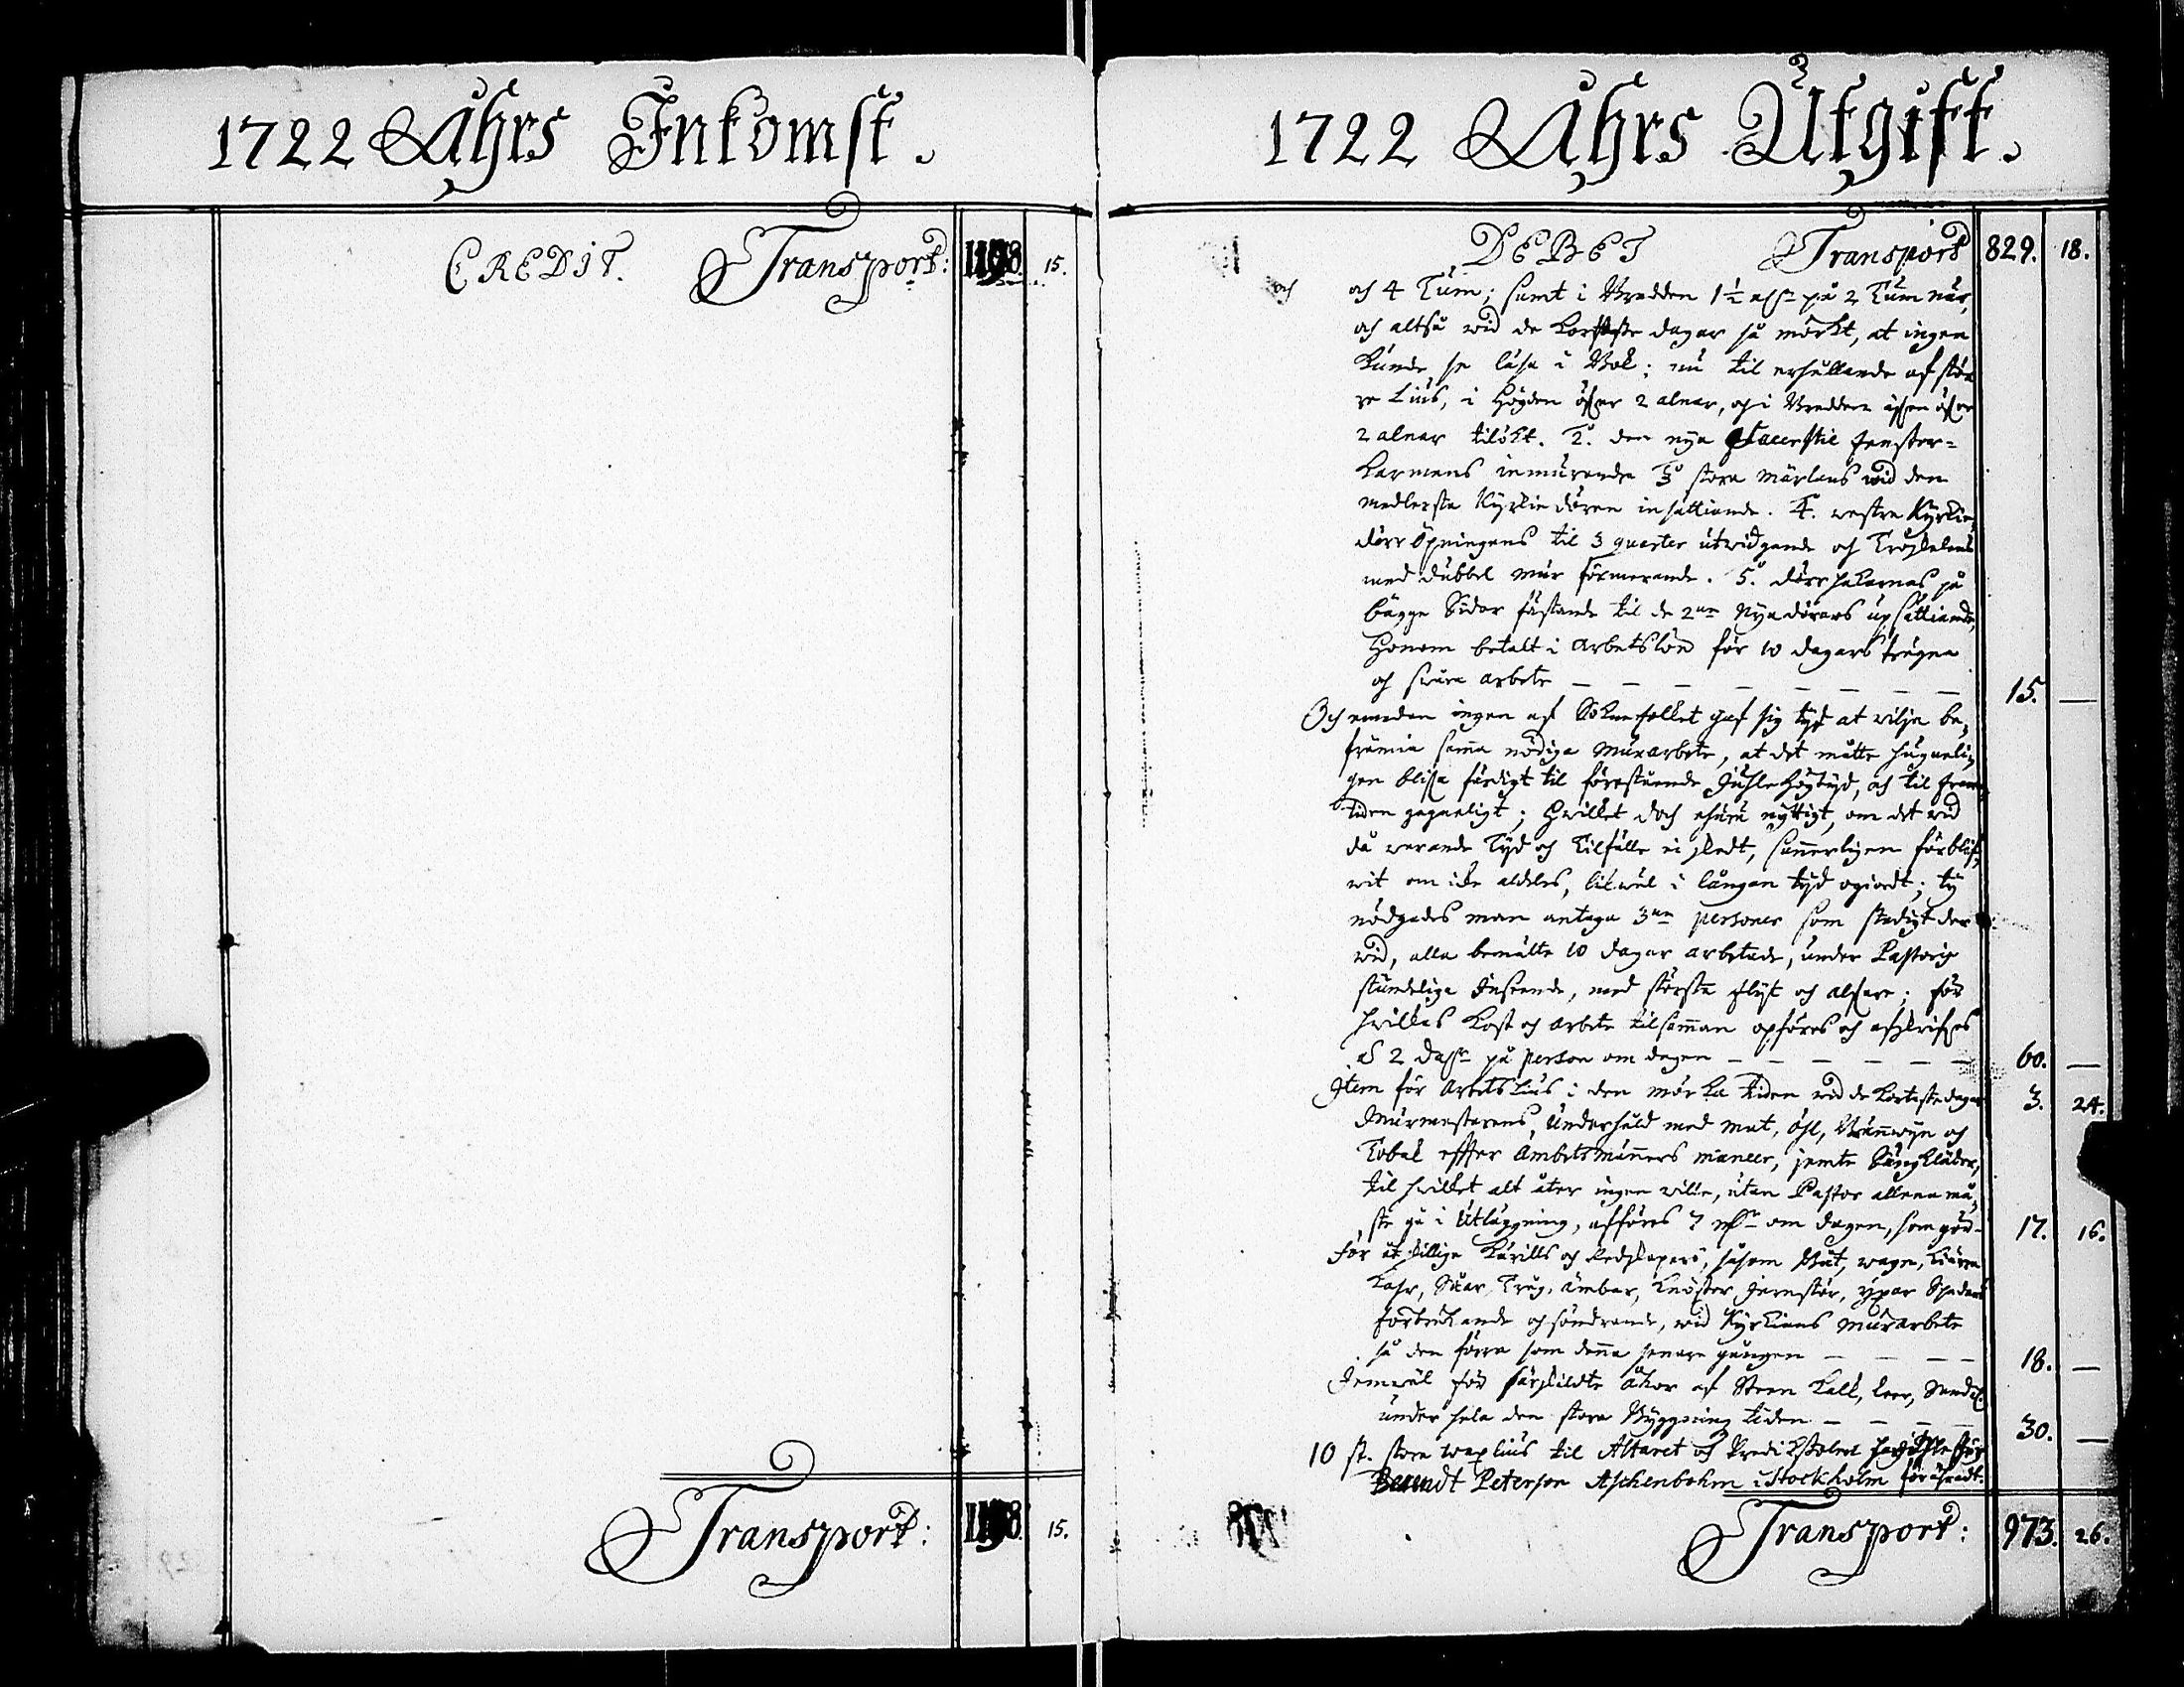 1722 Åhrs Inkomst.
CREDIT. Transport: 15.
Transport: 15.
1722 Åhrs Utgift.
DEBET Transport 829. 18.
och 4 Tum; samt i Bredden 1½ aln på 2 Tum när,
och altså wid de kortaste dagar så mörkt, at ingen
kunde se läsa i Bok; nu til erhållande af stör
re Lius, i Högden öfwer 2 alnar, och i Bredden äfwen öfwer
2 alnar tilökt. 2. den nya fenster=
karmens inmurande 3 stora Märlans wid den
medlersta Kyrkie dören insättiande. 4. westre Kyrkie
dörr Öpningens til 3 quarter utwidgande och
med dubbel mur formerande. 5. dörr hakarnas på
bägge Sidor fästande til de 2ne Nya dörars upsättiande,
Honom betalt i Arbetslön för 10 dagars trägna
och swåra Arbete — — — — — — — — 15. —
Och emedan ingen af Soknefolket gaf sig tijd at wilja be,
främia samma nödiga Murarbete, at det måtte
gen blifwa färdigt til förestående Juhle Högtijd, och til fram,
tiden gagneligt; Hwilket doch ehuru nyttigt, om det wid
då warande Tijd och Tilfälle ei skedt, sannerligen förblif,
wit om icke aldeles, likwäl i långan tijd ogiordt; ty
nödgades man antaga 3ne personer som stadigt der
wid, alla bemälte 10 dagar arbetade, under Pastoris
stundeliga Inseende, med största flijt och alfwar; för
hwilkas kost och arbete tilsamman opföres och afskrifwes
à 2 dahlr på person om dagen — — — — — — 60. —
Item för Arbets Lius i den mörka tiden wid de kortaste dagar 3. 24.
Murmestarens Underhåld med mat, öhl, Bränwijn och
Tobak efter Ämbetsmänners maneer, jemte Sängkläder,
til hwilket alt åter ingen wille, utan Pastor allena må,
ste gå i Utläggning, afföres 7 om dagen, som gör- 17. 16.
För åtskillige Kärills och Redskapers, såsom Båt, wagn, Kärra
Kahr, Såar, Tråg, ämbar, Jernstör, Spadars
förbrukande och söndrande, wid Kyrkians murarbete
så den förra som denna senare gången — — — — 18. —
Jemwäl för särskildte åkor af Steen Kalk, leer, Sand &c
under hela den stora Byggning tiden — — — — 30. —
10 st. stora wax lius til Altaret och Predikstolen
Berendt Peterson Aschenbohm i Stockholm förährat.
Transport: 973. 26.